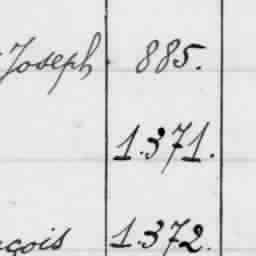 Joseph 885.
1.371.
çois 1.372.